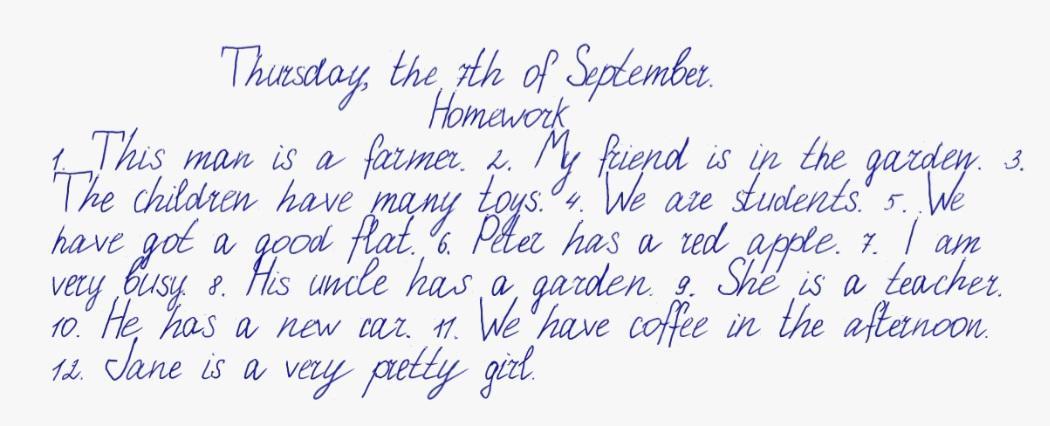 Thursday, the 7th of September.
Homework
1. This man is a farmer. 2. My friend is in the garden. 3.
The children have many toys. 4. We are students. 5. We
have got a good flat. 6. Peter has a red apple. 7. I am
very busy. 8. His uncle has a garden. 9. She is a teacher.
10. He has a new car. 11. We have coffee in the afternoon.
12. Jane is a very pretty girl.